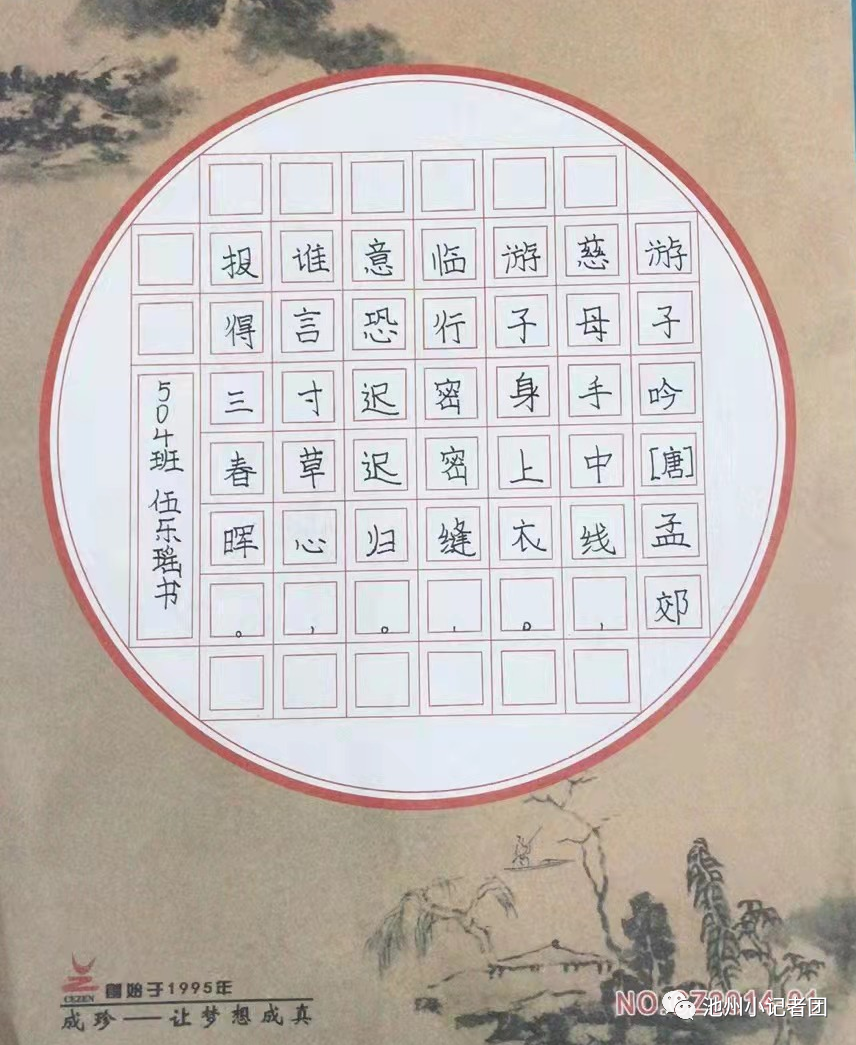 游子吟[唐]孟郊
慈母手中线，
游子身上衣。
临行密密缝，
意恐迟迟归。
谁言寸草心，
报得三春晖。
504班 伍乐瑶书
CEZEN
創始于1995年
成珍——让梦想成真
池州小记者团